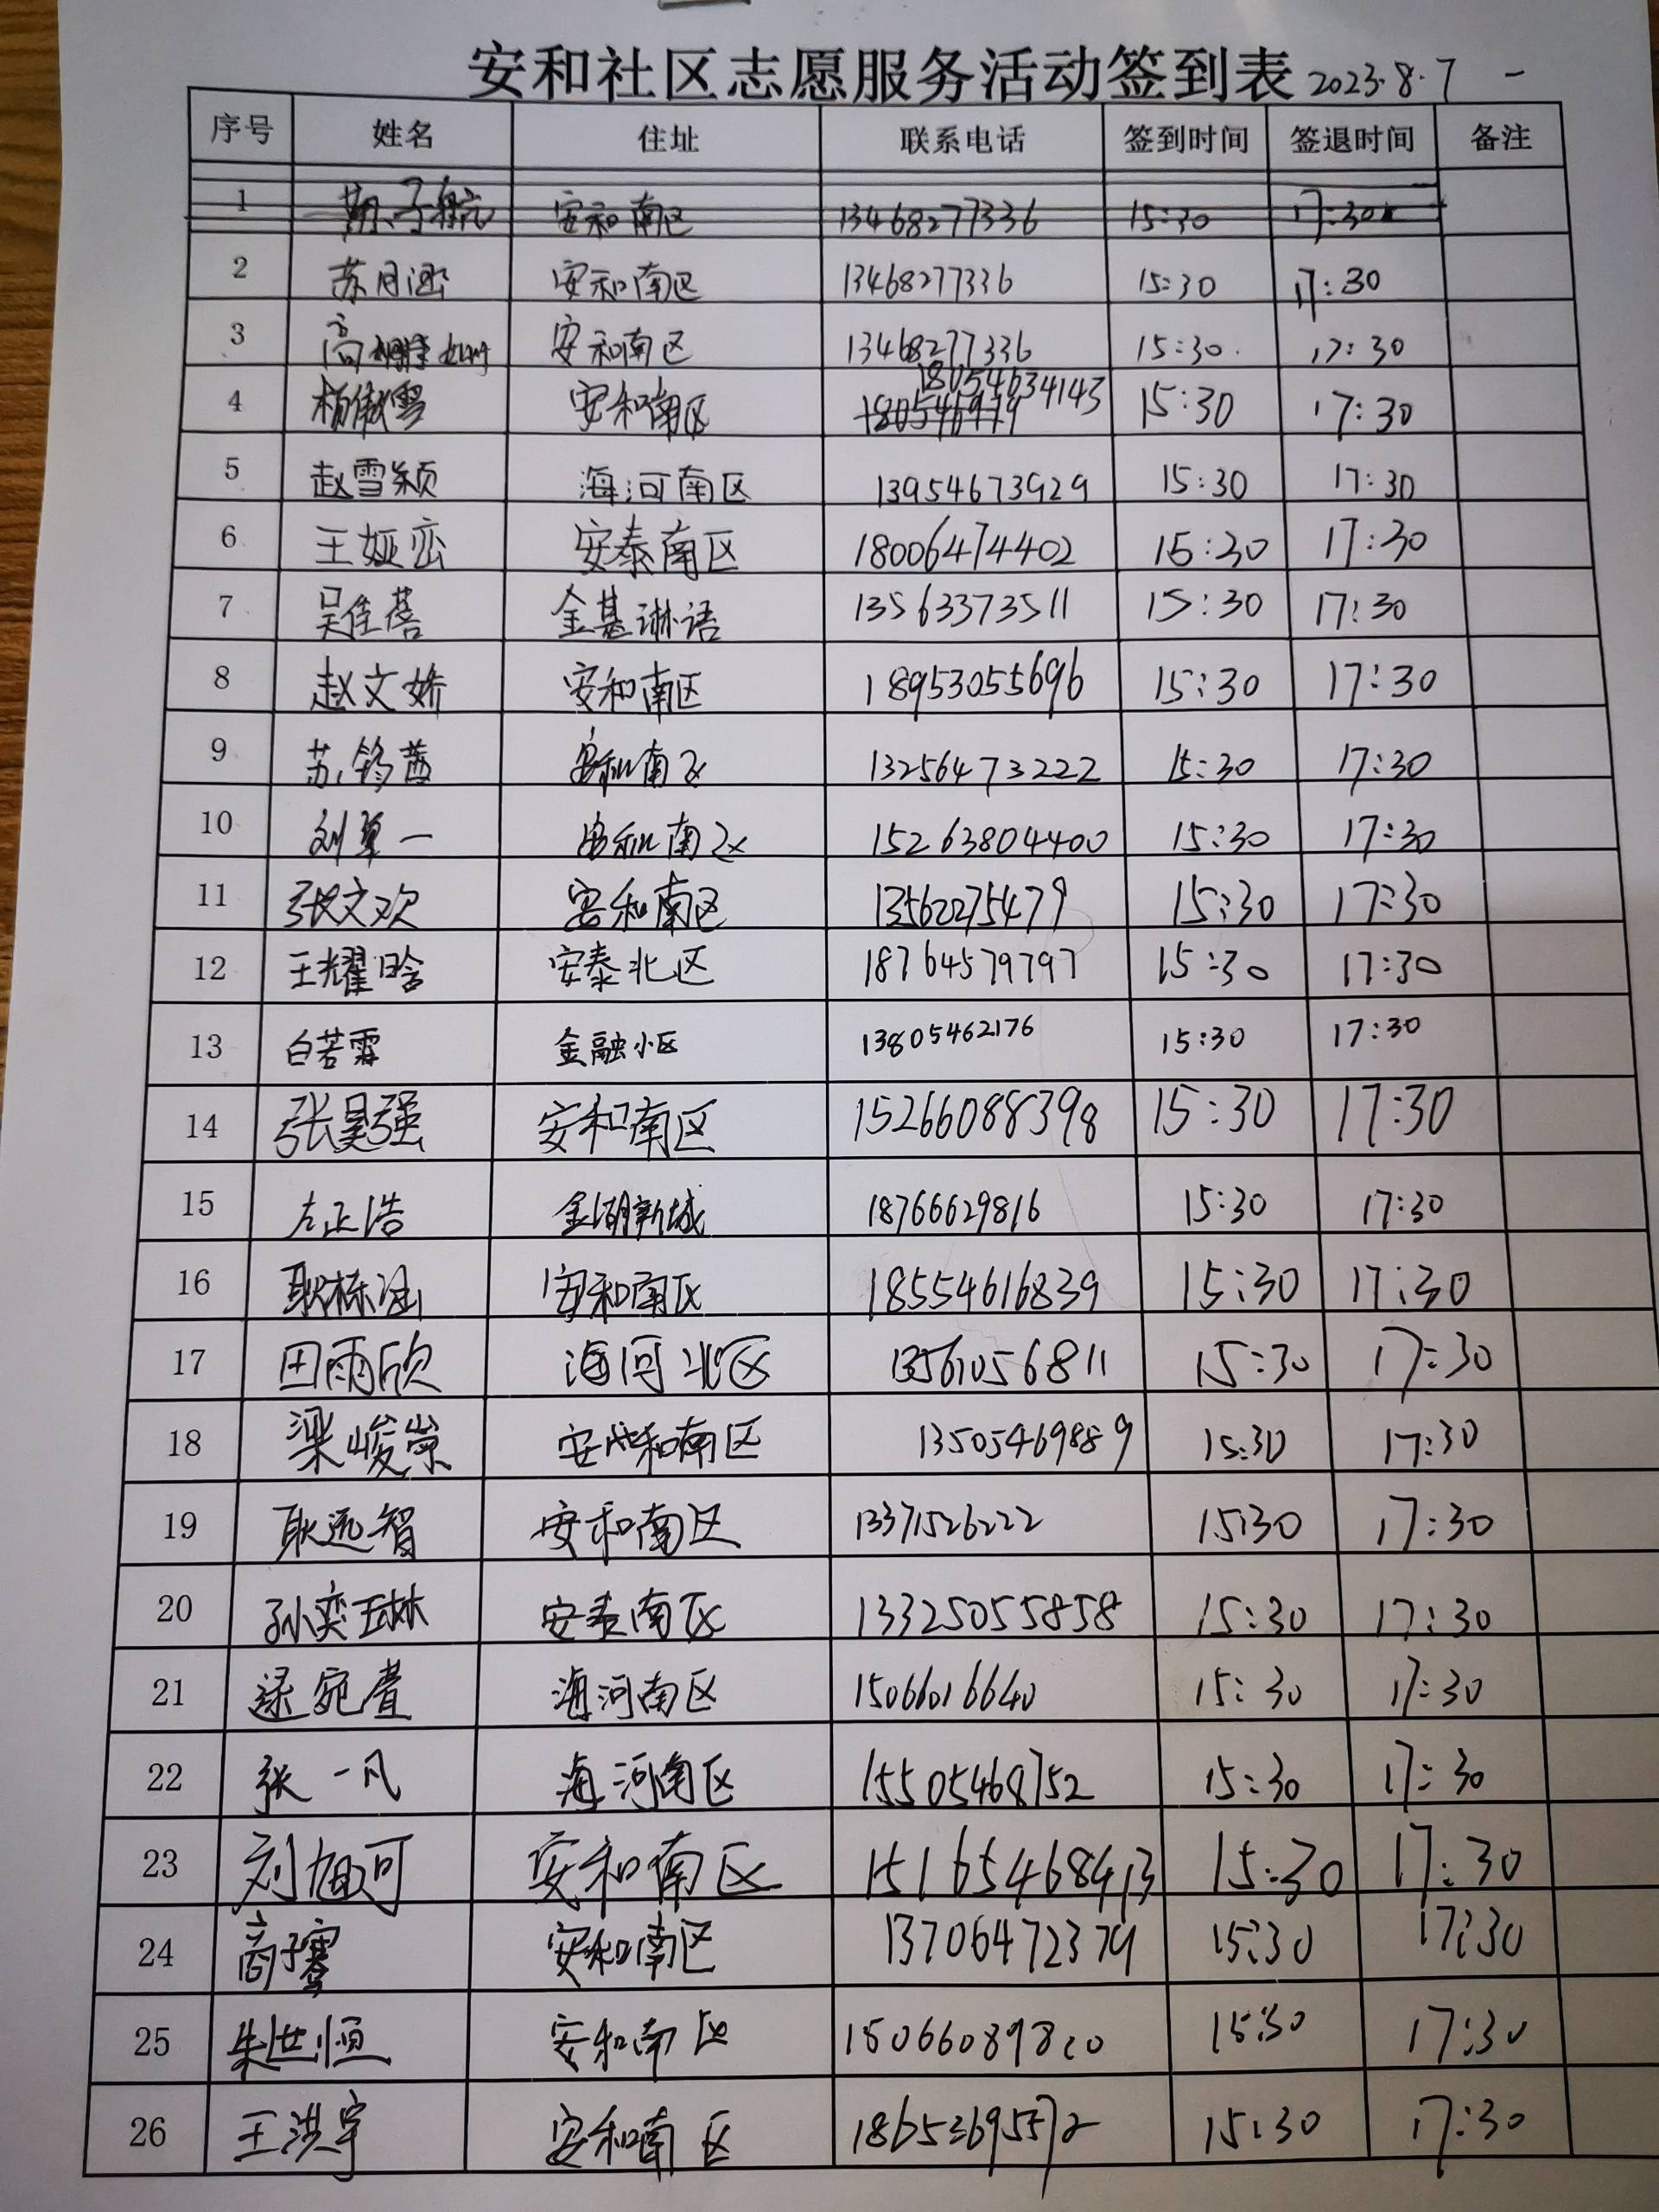 安和社区志愿服务活动签到表 2023.8.7
序号 姓名 住址 联系电话 签到时间 签退时间 备注
1 安和南区 13468277336 15:30 17:30
2 苏月涵 安和南区 13468277336 15:30 17:30
3 高 安和南区 13468277336 15:30 17:30
4 杨傲雪 安和南区 18054634143 15:30 17:30
5 赵雪颖 海河南区 13954673929 15:30 17:30
6 王娅峦 安泰南区 18006474402 15:30 17:30
7 吴佳蓓 金基琳语 13563373511 15:30 17:30
8 赵文娇 安和南区 18953055696 15:30 17:30
9 苏 安和南区 13256473222 15:30 17:30
10 刘 一 安和南区 15263804400 15:30 17:30
11 张文欢 安和南区 13562275479 15:30 17:30
12 王耀晗 安泰北区 18764579797 15:30 17:30
13 白若霖 金融小区 13805462176 15:30 17:30
14 张昊强 安和南区 15266088398 15:30 17:30
15 左正浩 金湖新城 18766629816 15:30 17:30
16 耿栋涵 安和南区 18554616839 15:30 17:30
17 田雨欣 海河北区 13561056811 15:30 17:30
18 梁峻崇 安和南区 13505469889 15:30 17:30
19 耿远智 安和南区 13371526222 15:30 17:30
20 孙奕琳 安泰南区 13325055858 15:30 17:30
21 逯宛萱 海河南区 15066016640 15:30 17:30
22 张一凡 海河南区 15505468752 15:30 17:30
23 刘旭可 安和南区 15165468413 15:30 17:30
24 商子骞 安和南区 13706472379 15:30 17:30
25 朱世恒 安和南区 15066089820 15:30 17:30
26 王洪宇 安和南区 18653695572 15:30 17:30